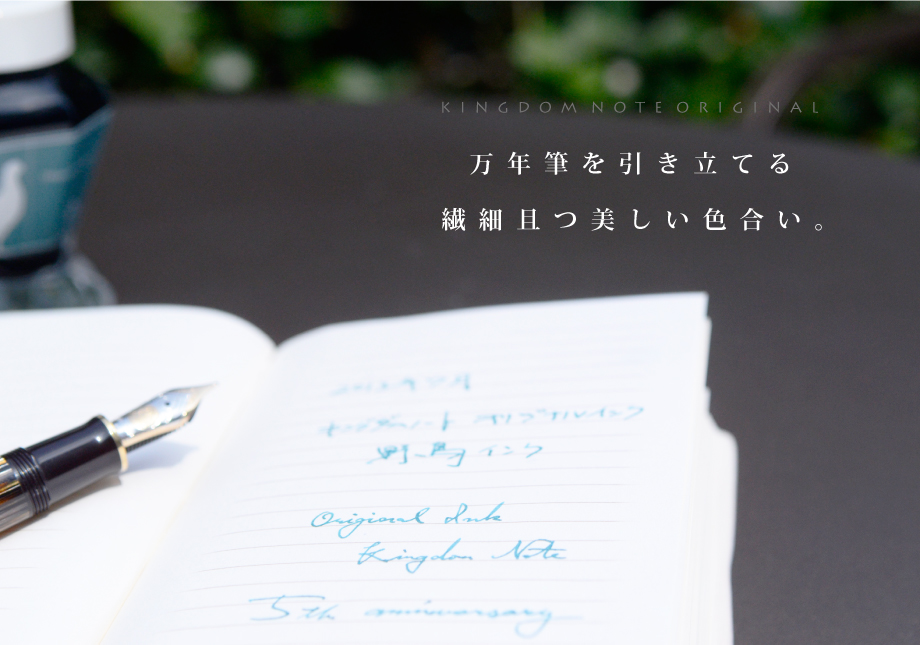 KINGDOM NOTE ORIGINAL
万年筆を引き立てる
繊細且つ美しい色合い。
キングダムノート オリジナルインク
野鳥インク
Original Ink
Kingdom Note
5th anniversary